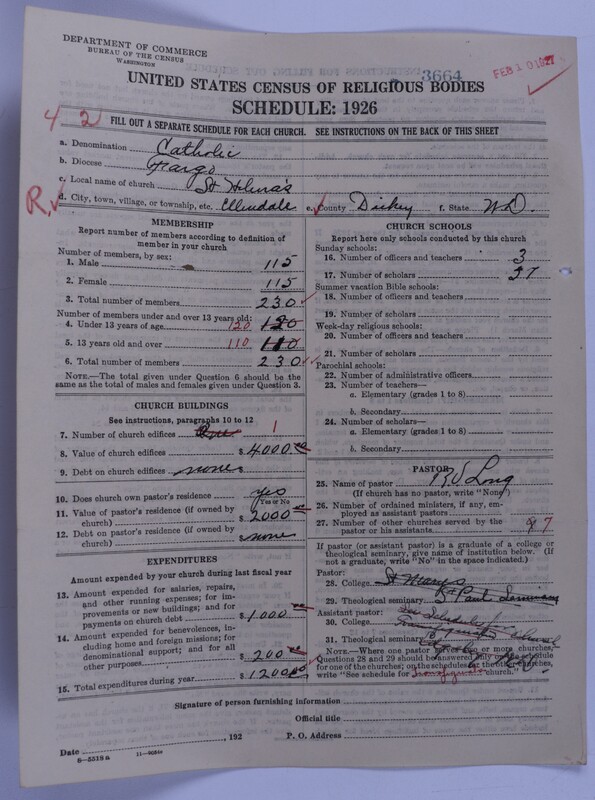 DEPARTMENT OF COMMERCE
BUREAU OF THE CENSUS
WASHINGTON
3664
FEB 10 1927
UNITED STATES CENSUS OF RELIGIOUS BODIES
SCHEDULE: 1926
4 2
FILL OUT A SEPARATE SCHEDULE FOR EACH CHURCH. SEE INSTRUCTIONS ON THE BACK OF THIS SHEET
a. Denomination Catholic
b. Diocese Fargo
c. Local name of church St Helena's
R. d. City, town, village, or township, etc. Ellendale e. County Dickey f. State N.D.
MEMBERSHIP
Report number of members according to definition of member in your church
Number of members, by sex:
1. Male 115
2. Female 115
3. Total number of members 230
Number of members under and over 13 years old:
4. Under 13 years of age 120 120
5. 13 years old and over 110 110
6. Total number of members 230
NOTE.—The total given under Question 6 should be the same as the total of males and females given under Question 3.
CHURCH BUILDINGS
See instructions, paragraphs 10 to 12
7. Number of church edifices One 1
8. Value of church edifices $ 4000.00
9. Debt on church edifices none
10. Does church own pastor's residence yes
Yes or No
11. Value of pastor's residence (if owned by church) $ 2000
12. Debt on pastor's residence (if owned by church) $ none
EXPENDITURES
Amount expended by your church during last fiscal year
13. Amount expended for salaries, repairs, and other running expenses; for improvements or new buildings; and for payments on church debt $ 1000.00
14. Amount expended for benevolences, including home and foreign missions; for denominational support; and for all other purposes $ 200.00
15. Total expenditures during year $ 1200.00
CHURCH SCHOOLS
Report here only schools conducted by this church
Sunday schools:
16. Number of officers and teachers 3
17. Number of scholars 37
Summer vacation Bible schools:
18. Number of officers and teachers
19. Number of scholars
Week-day religious schools:
20. Number of officers and teachers
21. Number of scholars
Parochial schools:
22. Number of administrative officers
23. Number of teachers—
a. Elementary (grades 1 to 8)
b. Secondary
24. Number of scholars—
a. Elementary (grades 1 to 8)
b. Secondary
PASTOR
25. Name of pastor Long
(If church has no pastor, write "None")
26. Number of ordained ministers, if any, employed as assistant pastors
27. Number of other churches served by the pastor or his assistants 7
If pastor (or assistant pastor) is a graduate of a college or theological seminary, give name of institution below. (If not a graduate, write "No" in the space indicated.)
Pastor:
28. College St Marys
29. Theological seminary St Paul Seminary
Assistant pastor:
30. College
31. Theological seminary
NOTE.—Where one pastor serves two or more churches, Questions 28 and 29 should be answered only on the schedule for one of the churches; on the schedules for the other churches, write "See schedule for Transfiguration church."
Signature of person furnishing information
Official title
Date , 192 P. O. Address
8—5518a 11—9054